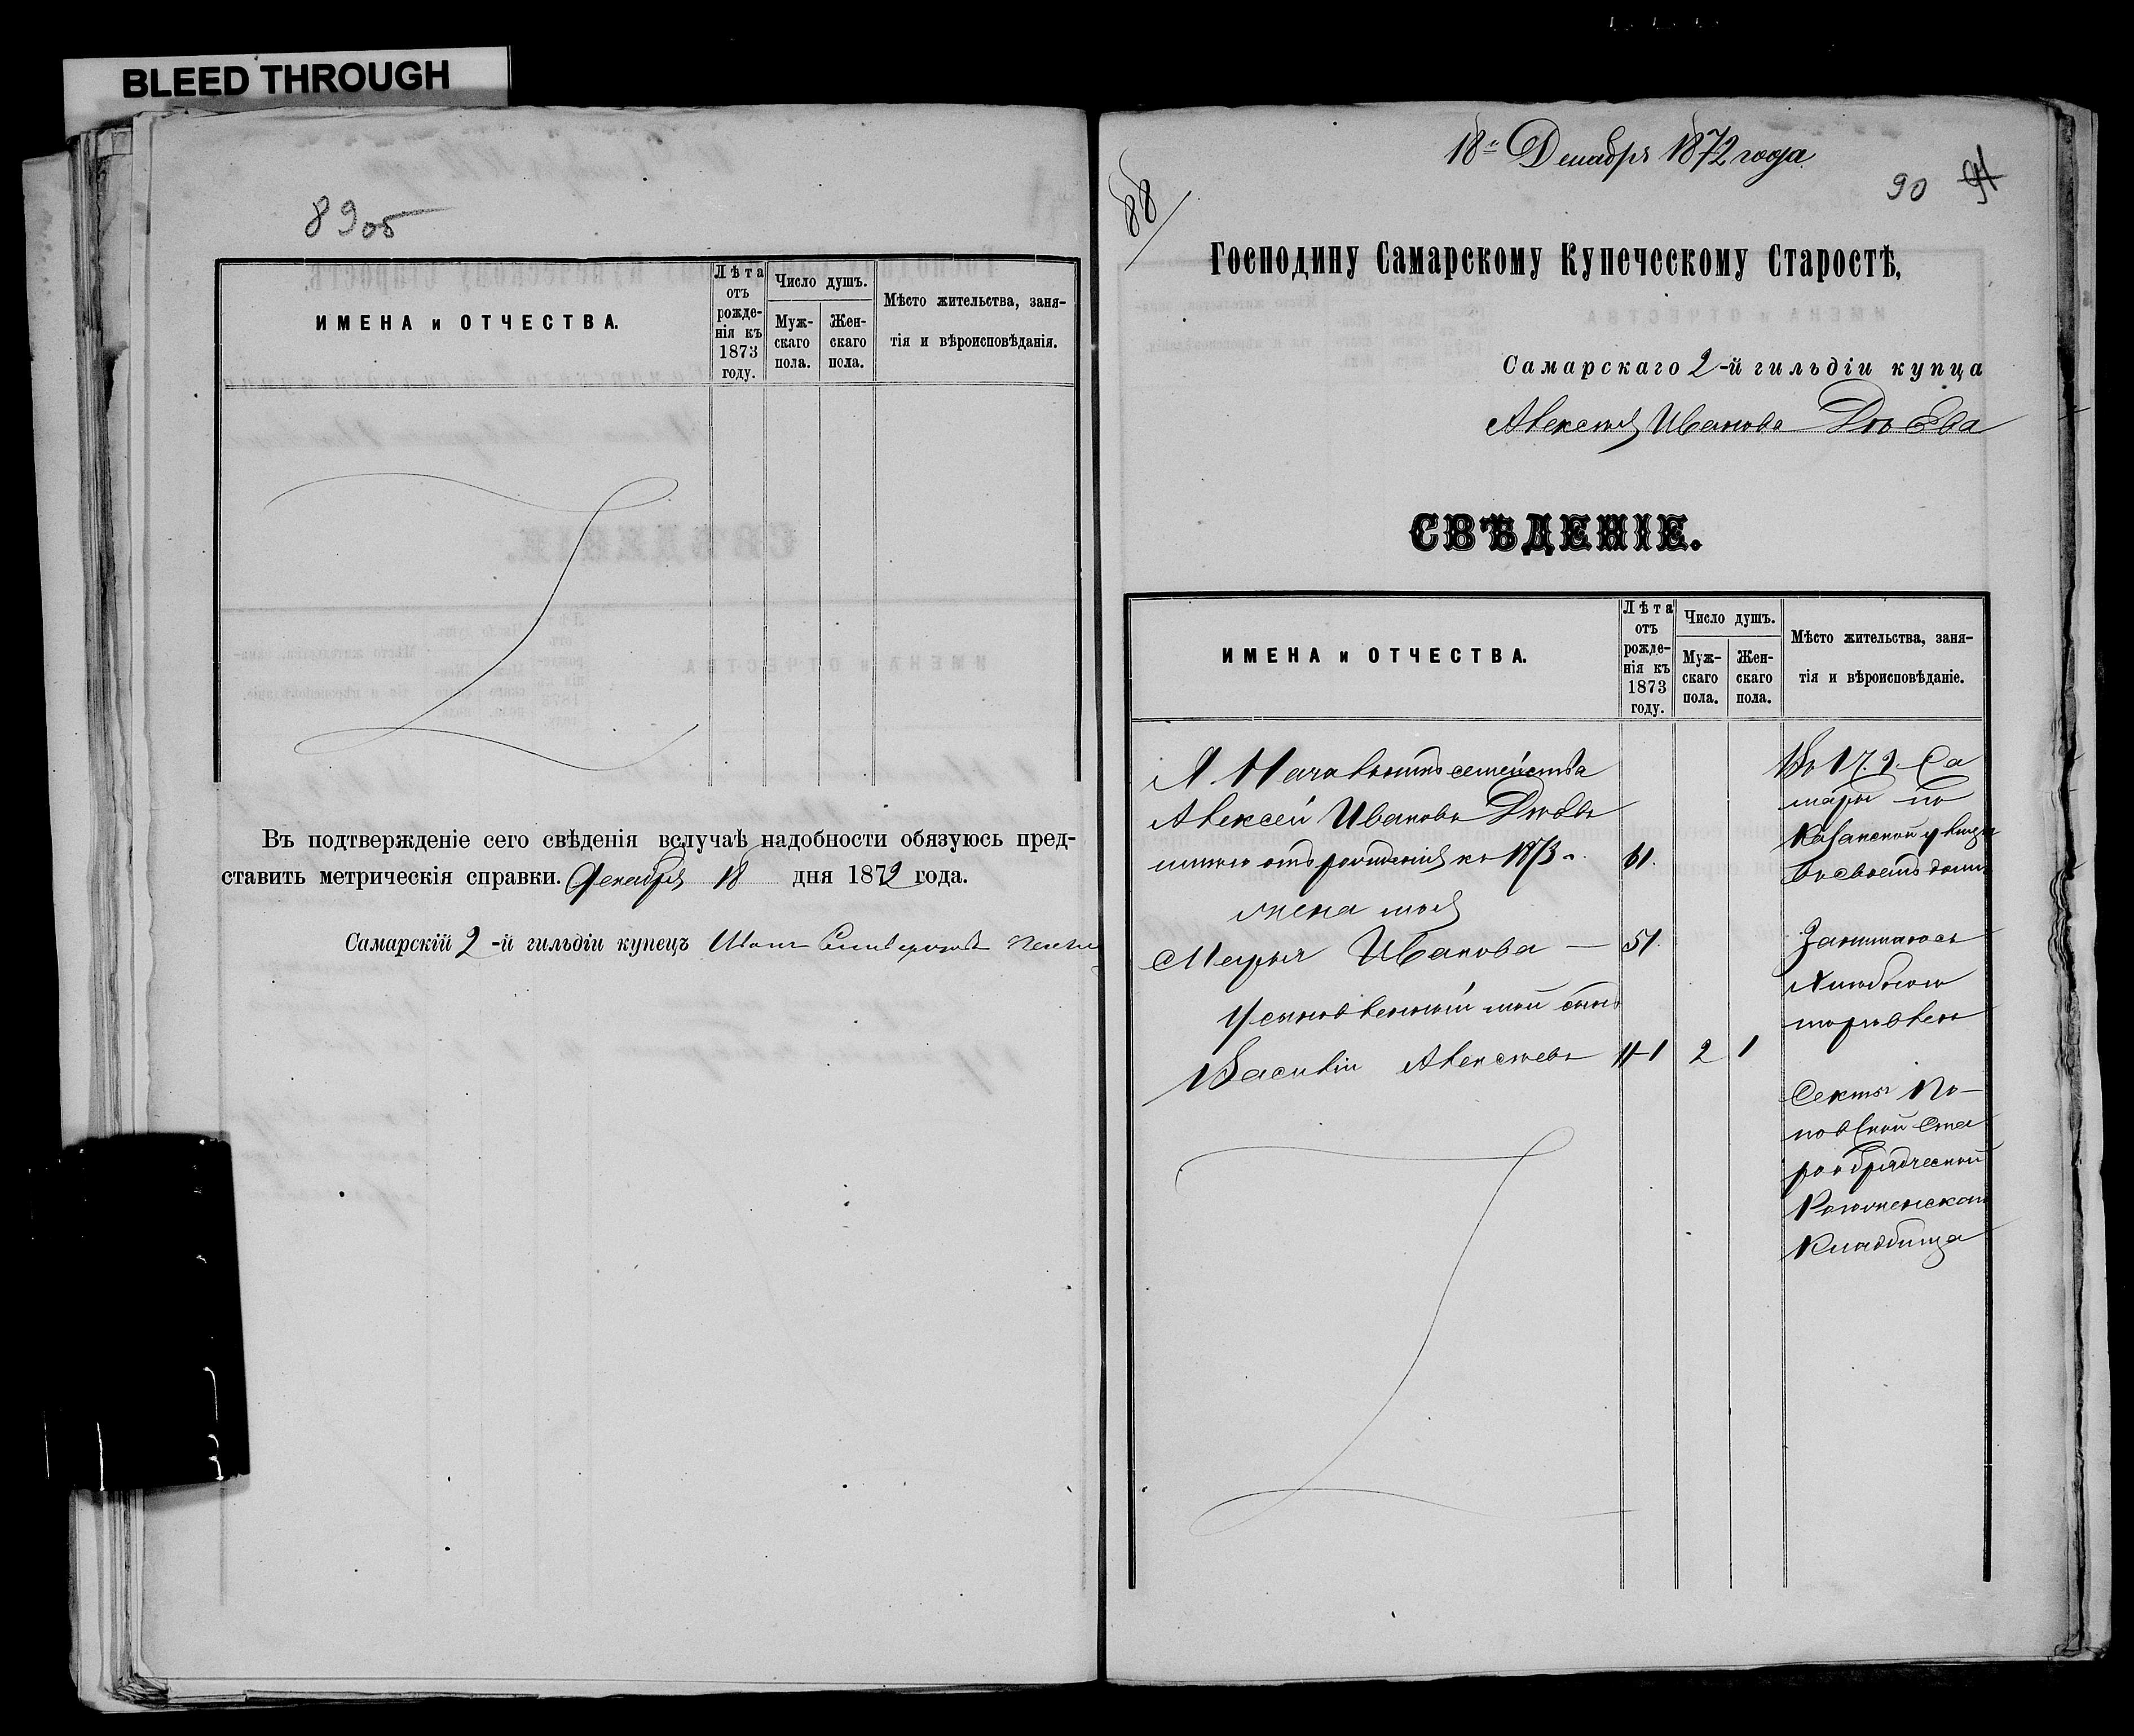 BLEED THROUGH
89об
ИМЕНА и ОТЧЕСТВА.
Лѣта отъ рожденія къ 1873 году.
Число душъ.
Мужскаго пола.
Женскаго пола.
Мѣсто жительства, заня-
тія и вѣроисповѣданія.
Въ подтвержденіе сего свѣденія вслучаѣ надобности обязуюсь пред-
ставить метрическія справки. Декабря 18 дня 1872 года.
Самарскій 2-й гильдіи купецъ
18 Декабря 1872 года
88
90 91
Господину Самарскому Купеческому Старостѣ,
Самарскаго 2-й гильдіи купца
Алексѣя Иванова
СВѢДЕНІЕ.
ИМЕНА и ОТЧЕСТВА.
Лѣта отъ рожденія къ 1873 году.
Число душъ.
Мужскаго пола.
Женскаго пола.
Мѣсто жительства, заня-
тія и вѣроисповѣданіе.
Я семейства
Алексей Ивановъ
отъ рожденія къ 1873 61.
жена моя
Марья Иванова — 51.
Усыновленный мой сынъ
Василій Алексѣевъ 11 2 1
Са
марѣ по
Казанской улицѣ
въ своемъ домѣ
Занимаюсь
Хлѣбною
торговлею
Секты По-
повской Ста
рообрядческой
Рогожскаго
Кладбища